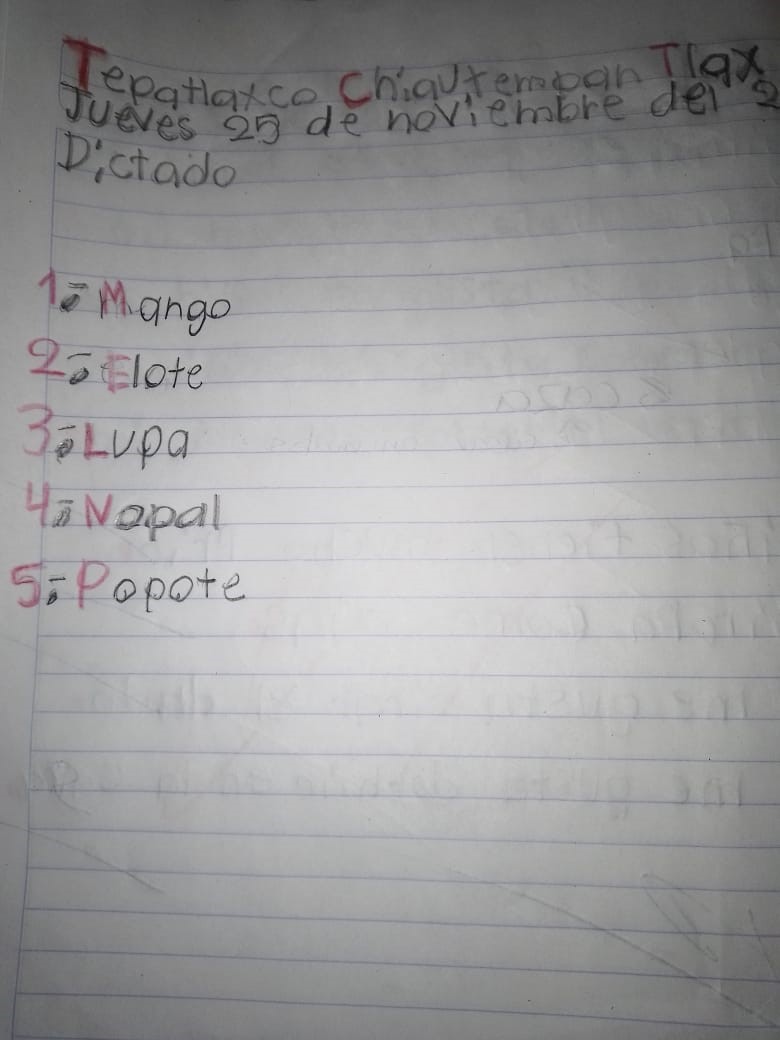 Tepatlaxco Chiautempan Tlax
Jueves 25 de noviembre del 2
Dictado
1.- Mango
2.- Elote
3.- Lupa
4.- Nopal
5.- Popote